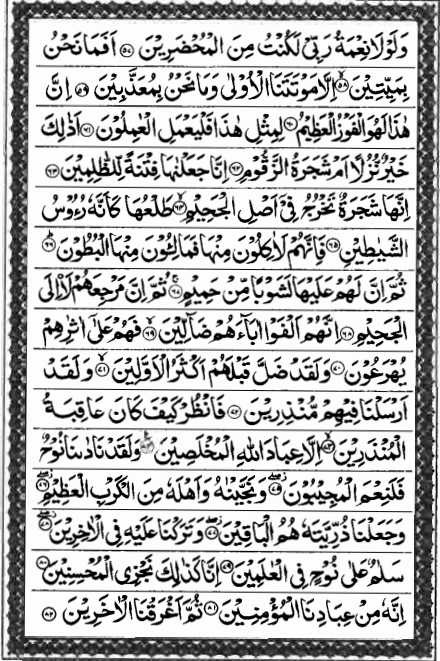 وَلَوْلَا نِعْمَةُ رَبِّىْ لَكُنْتُ مِنَ الْمُحْضَرِيْنَ ﴿۵۷﴾ اَفَمَا نَحْنُ
بِمَيِّتِيْنَ ﴿۵۸﴾ اِلَّا مَوْتَتَنَا الْاُوْلٰى وَمَا نَحْنُ بِمُعَذَّبِيْنَ ﴿۵۹﴾ اِنَّ
هٰذَا لَهُوَ الْفَوْزُ الْعَظِيْمُ ﴿۶۰﴾ لِمِثْلِ هٰذَا فَلْيَعْمَلِ الْعٰمِلُوْنَ ﴿۶۱﴾ اَذٰلِكَ
خَيْرٌ نُّزُلًا اَمْ شَجَرَةُ الزَّقُّوْمِ ﴿۶۲﴾ اِنَّا جَعَلْنٰهَا فِتْنَةً لِّلظّٰلِمِيْنَ ﴿۶۳﴾
اِنَّهَا شَجَرَةٌ تَخْرُجُ فِىْٓ اَصْلِ الْجَحِيْمِ ﴿۶۴﴾ طَلْعُهَا كَاَنَّهٗ رُءُوْسُ
الشَّيٰطِيْنِ ﴿۶۵﴾ فَاِنَّهُمْ لَاٰكِلُوْنَ مِنْهَا فَمَالِـُٔوْنَ مِنْهَا الْبُطُوْنَ ﴿۶۶﴾
ثُمَّ اِنَّ لَهُمْ عَلَيْهَا لَشَوْبًا مِّنْ حَمِيْمٍ ﴿۶۷﴾ ثُمَّ اِنَّ مَرْجِعَهُمْ لَا۟اِلَى
الْجَحِيْمِ ﴿۶۸﴾ اِنَّهُمْ اَلْفَوْا اٰبَآءَهُمْ ضَآلِّيْنَ ﴿۶۹﴾ فَهُمْ عَلٰٓى اٰثٰرِهِمْ
يُهْرَعُوْنَ ﴿۷۰﴾ وَلَقَدْ ضَلَّ قَبْلَهُمْ اَكْثَرُ الْاَوَّلِيْنَ ﴿۷۱﴾ وَلَقَدْ
اَرْسَلْنَا فِيْهِمْ مُّنْذِرِيْنَ ﴿۷۲﴾ فَانْظُرْ كَيْفَ كَانَ عَاقِبَةُ
الْمُنْذَرِيْنَ ﴿۷۳﴾ اِلَّا عِبَادَ اللّٰهِ الْمُخْلَصِيْنَ ﴿۷۴﴾ وَلَقَدْ نَادٰىنَا نُوْحٌ
فَلَنِعْمَ الْمُجِيْبُوْنَ ﴿۷۵﴾ وَنَجَّيْنٰهُ وَاَهْلَهٗ مِنَ الْكَرْبِ الْعَظِيْمِ ﴿۷۶﴾
وَجَعَلْنَا ذُرِّيَّتَهٗ هُمُ الْبٰقِيْنَ ﴿۷۷﴾ وَتَرَكْنَا عَلَيْهِ فِى الْاٰخِرِيْنَ ﴿۷۸﴾
سَلٰمٌ عَلٰى نُوْحٍ فِى الْعٰلَمِيْنَ ﴿۷۹﴾ اِنَّا كَذٰلِكَ نَجْزِى الْمُحْسِنِيْنَ ﴿۸۰﴾
اِنَّهٗ مِنْ عِبَادِنَا الْمُؤْمِنِيْنَ ﴿۸۱﴾ ثُمَّ اَغْرَقْنَا الْاٰخَرِيْنَ ﴿۸۲﴾